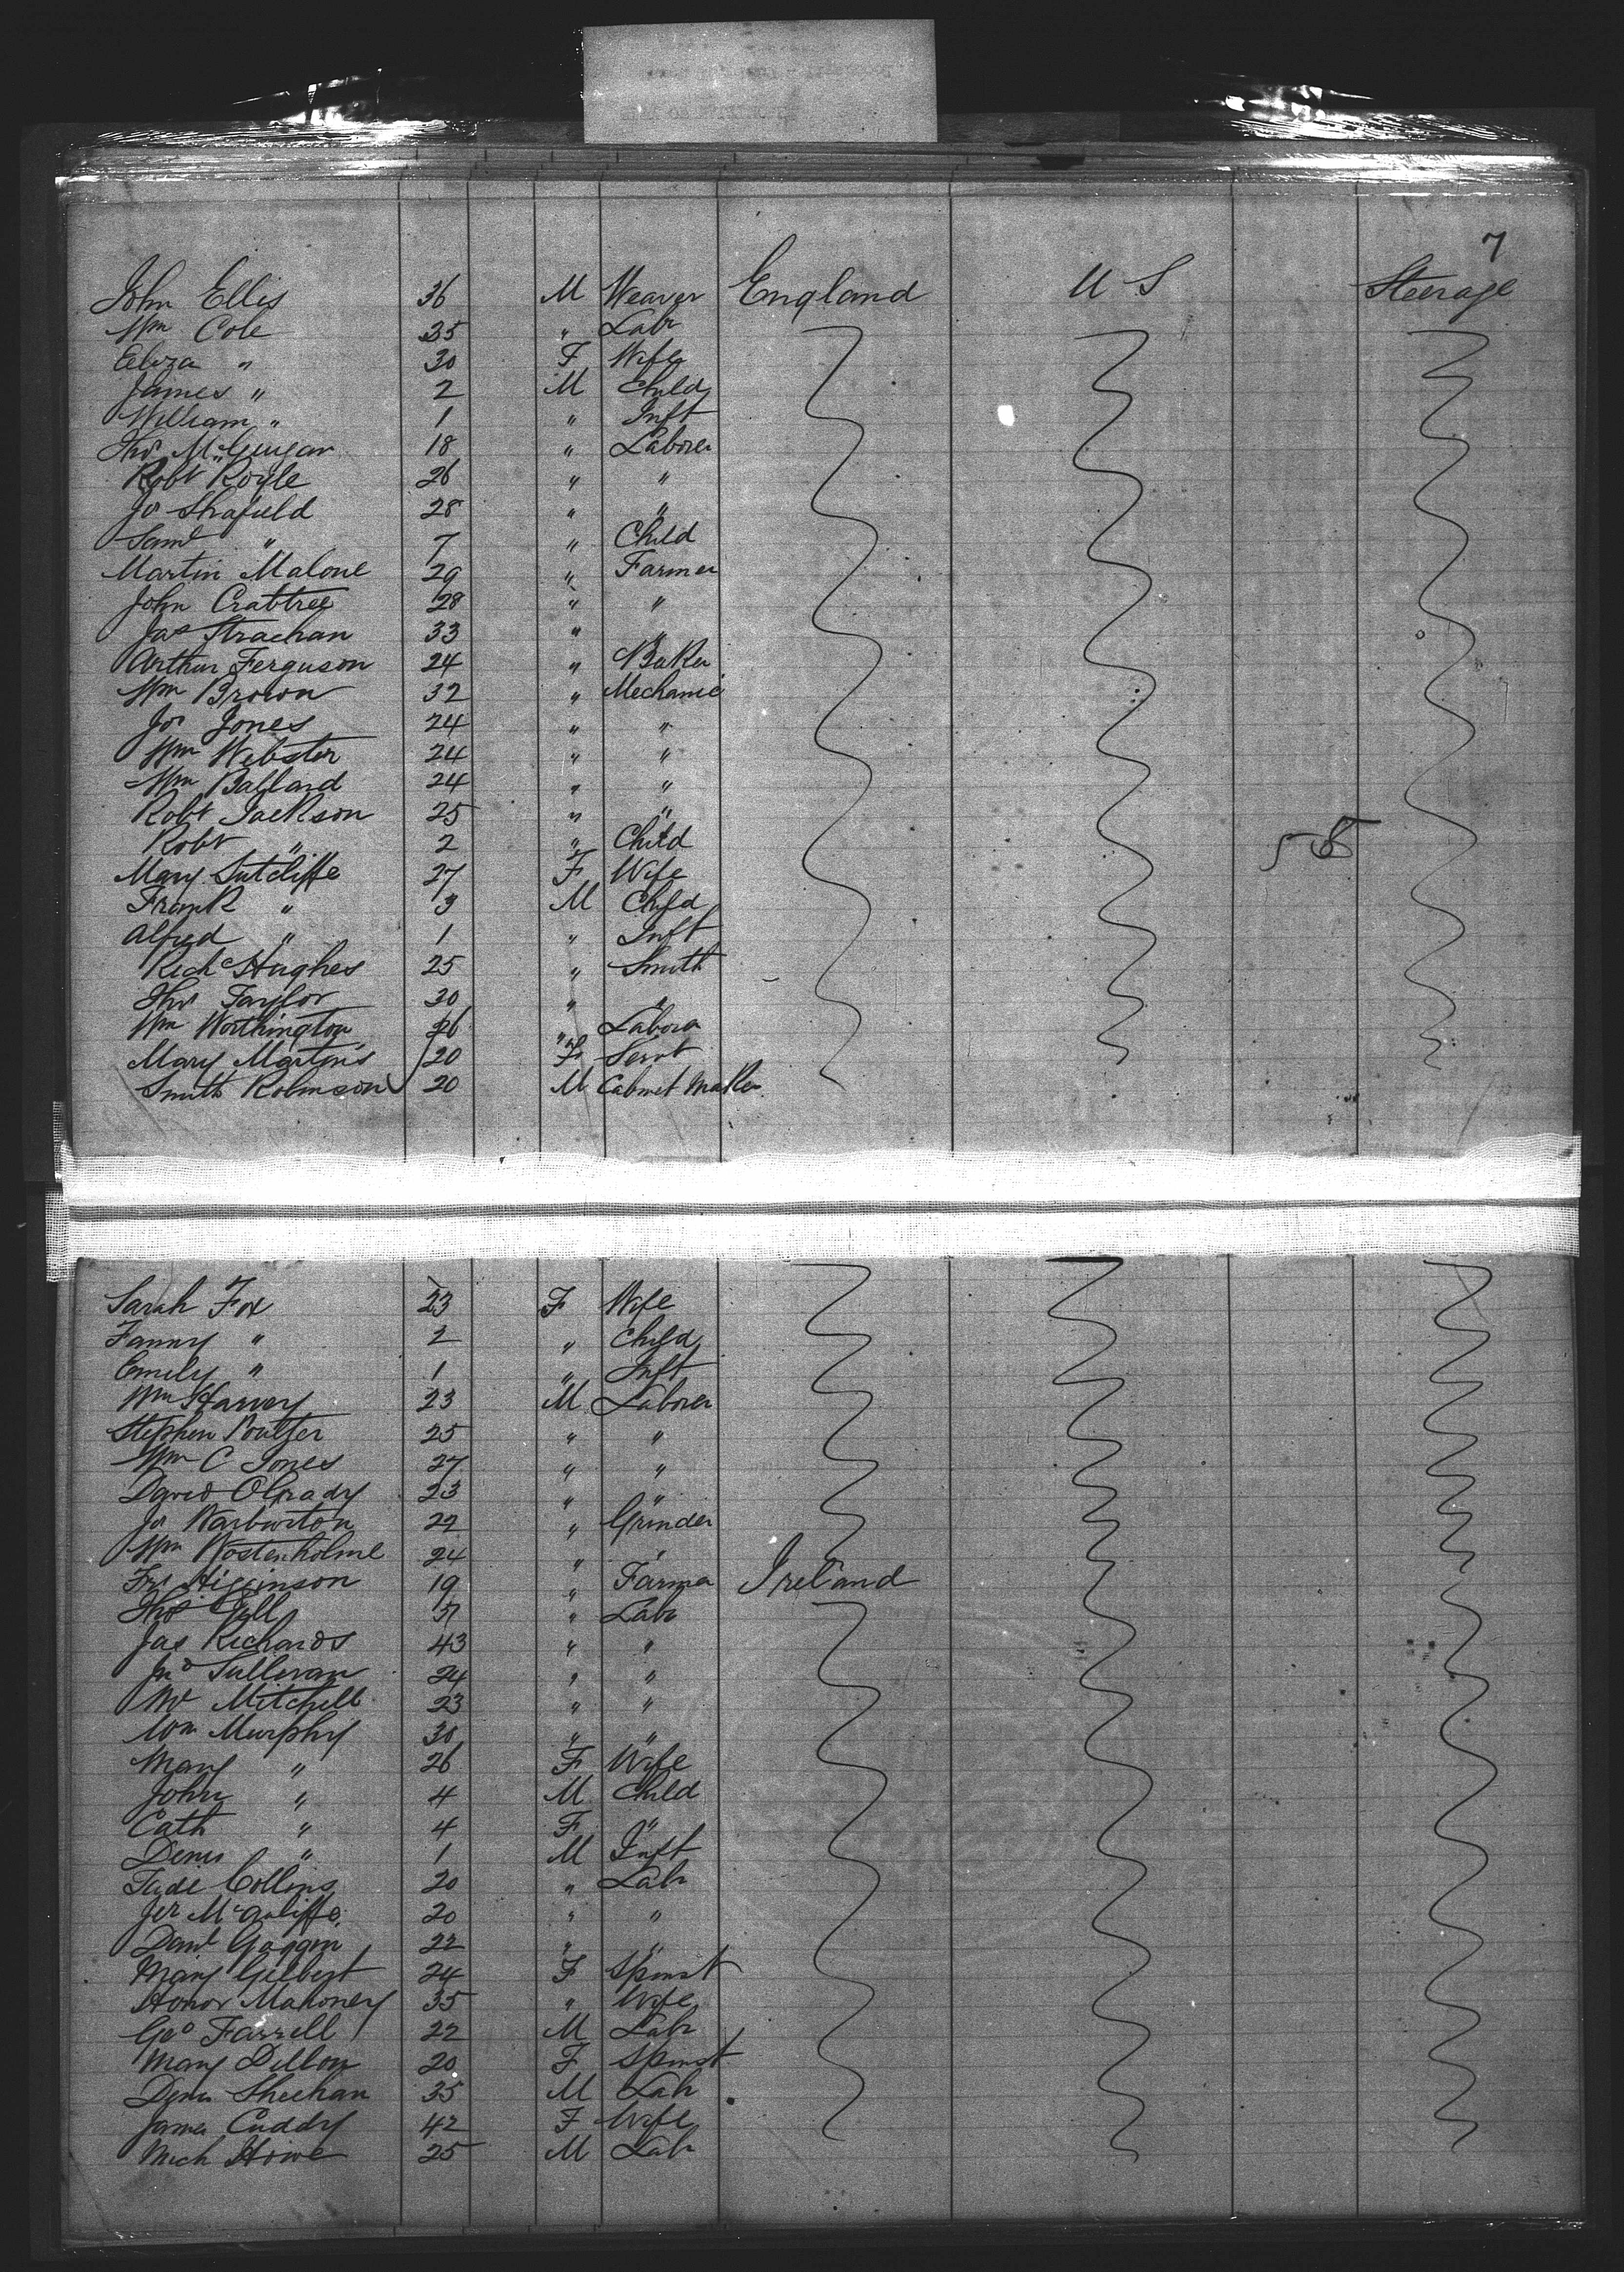 7
John Ellis 36 M Weaver England U S Steerage
Wm Cole 35 " Labr
Eliza " 30 F Wife
James " 2 M Child
William " 1 " Inft
Thos 18 " Laborer
Robt Royle 26 " "
Jos 28 " "
Saml " 7 " Child
Martin Malone 29 " Farmer
John Crabtree 28 " "
Jas Strachan 33 " "
Arthur Ferguson 24 " Baker
Wm Brown 32 " Mechanic
Jos Jones 24 " "
Wm Webster 24 " "
Wm Balland 24 " "
Robt Jackson 25 " "
Robt " 2 " Child
Mary Sutcliffe 27 F Wife
Frank " 3 M Child
Alfred " 1 " Inft
Richd Hughes 25 " Smith
Thos Taylor 30 " "
Wm Worthington 26 " Labora
Mary Martins 20 F Servt
Smith Robinson 20 M Cabinet Maker
Sarah Fox 23 F Wife
Fanny " 2 " Child
Emily " 1 " Inft
Wm Harvey 23 M Laborer
Stephen Poulter 25 " "
Wm C Jones 27 " "
David OGrady 23 " "
Jos Warburton 22 " Grinder
Wm Wostenholme 24 " "
Frs Higginson 19 " Farmer Ireland
Thos Gill " Labr
Jas Richards 43 " "
Jno Sullivan 24 " "
Mitchell 23 " "
Wm Murphy 30 " "
Mary " 26 F Wife
John " 4 M Child
Cath " 4 F "
Denis " 1 M Inft
Tade Collins 20 " Labr
Jer McAuliffe 20 " "
Danl Goggin 22 " "
Mary Gilbert 24 F Spinst
Honor Mahoney 35 " Wife
Geo Farrell 22 M Labr
Mary Dillon 20 F Spinst
Denis Sheehan 35 M Labr
James Cuddy 42 F Wife
Mich Howe 25 M Labr